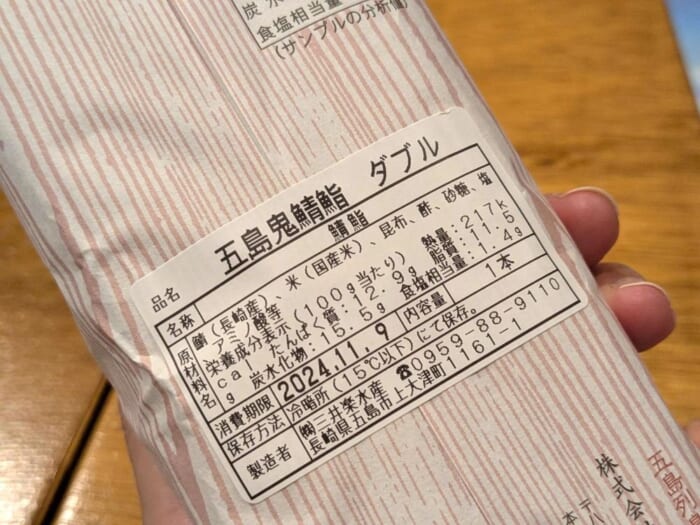 炭水
食塩相当量
(サンプルの分析値)
品名 五島鬼鯖鮨 ダブル
名称 鯖鮨
原材料名 鯖(長崎産)、米(国産米)、昆布、酢、砂糖、塩
アミノ酸等
栄養成分表示(100g当たり) 熱量:217k
cal たんぱく質:12.9g 脂質:11.5
g 炭水化物:15.5g 食塩相当量:1.4g
消費期限 2024.11.9 内容量 1本
保存方法 冷暗所(15℃以下)にて保存。
製造者 ㈱三井楽水産 ☎0959-88-9110
長崎県五島市上大津町1161-1
五島列
株式会
本